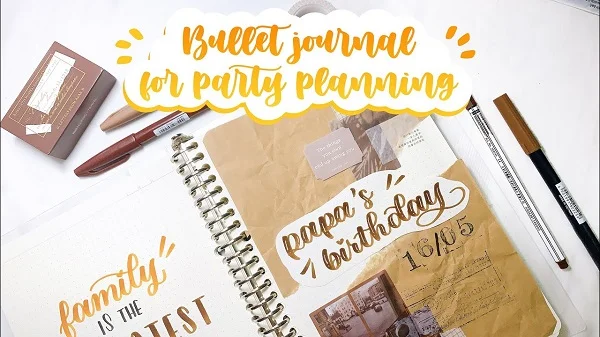 Bullet journal
for party planning
papa's
birthday
16/05
family
IS THE